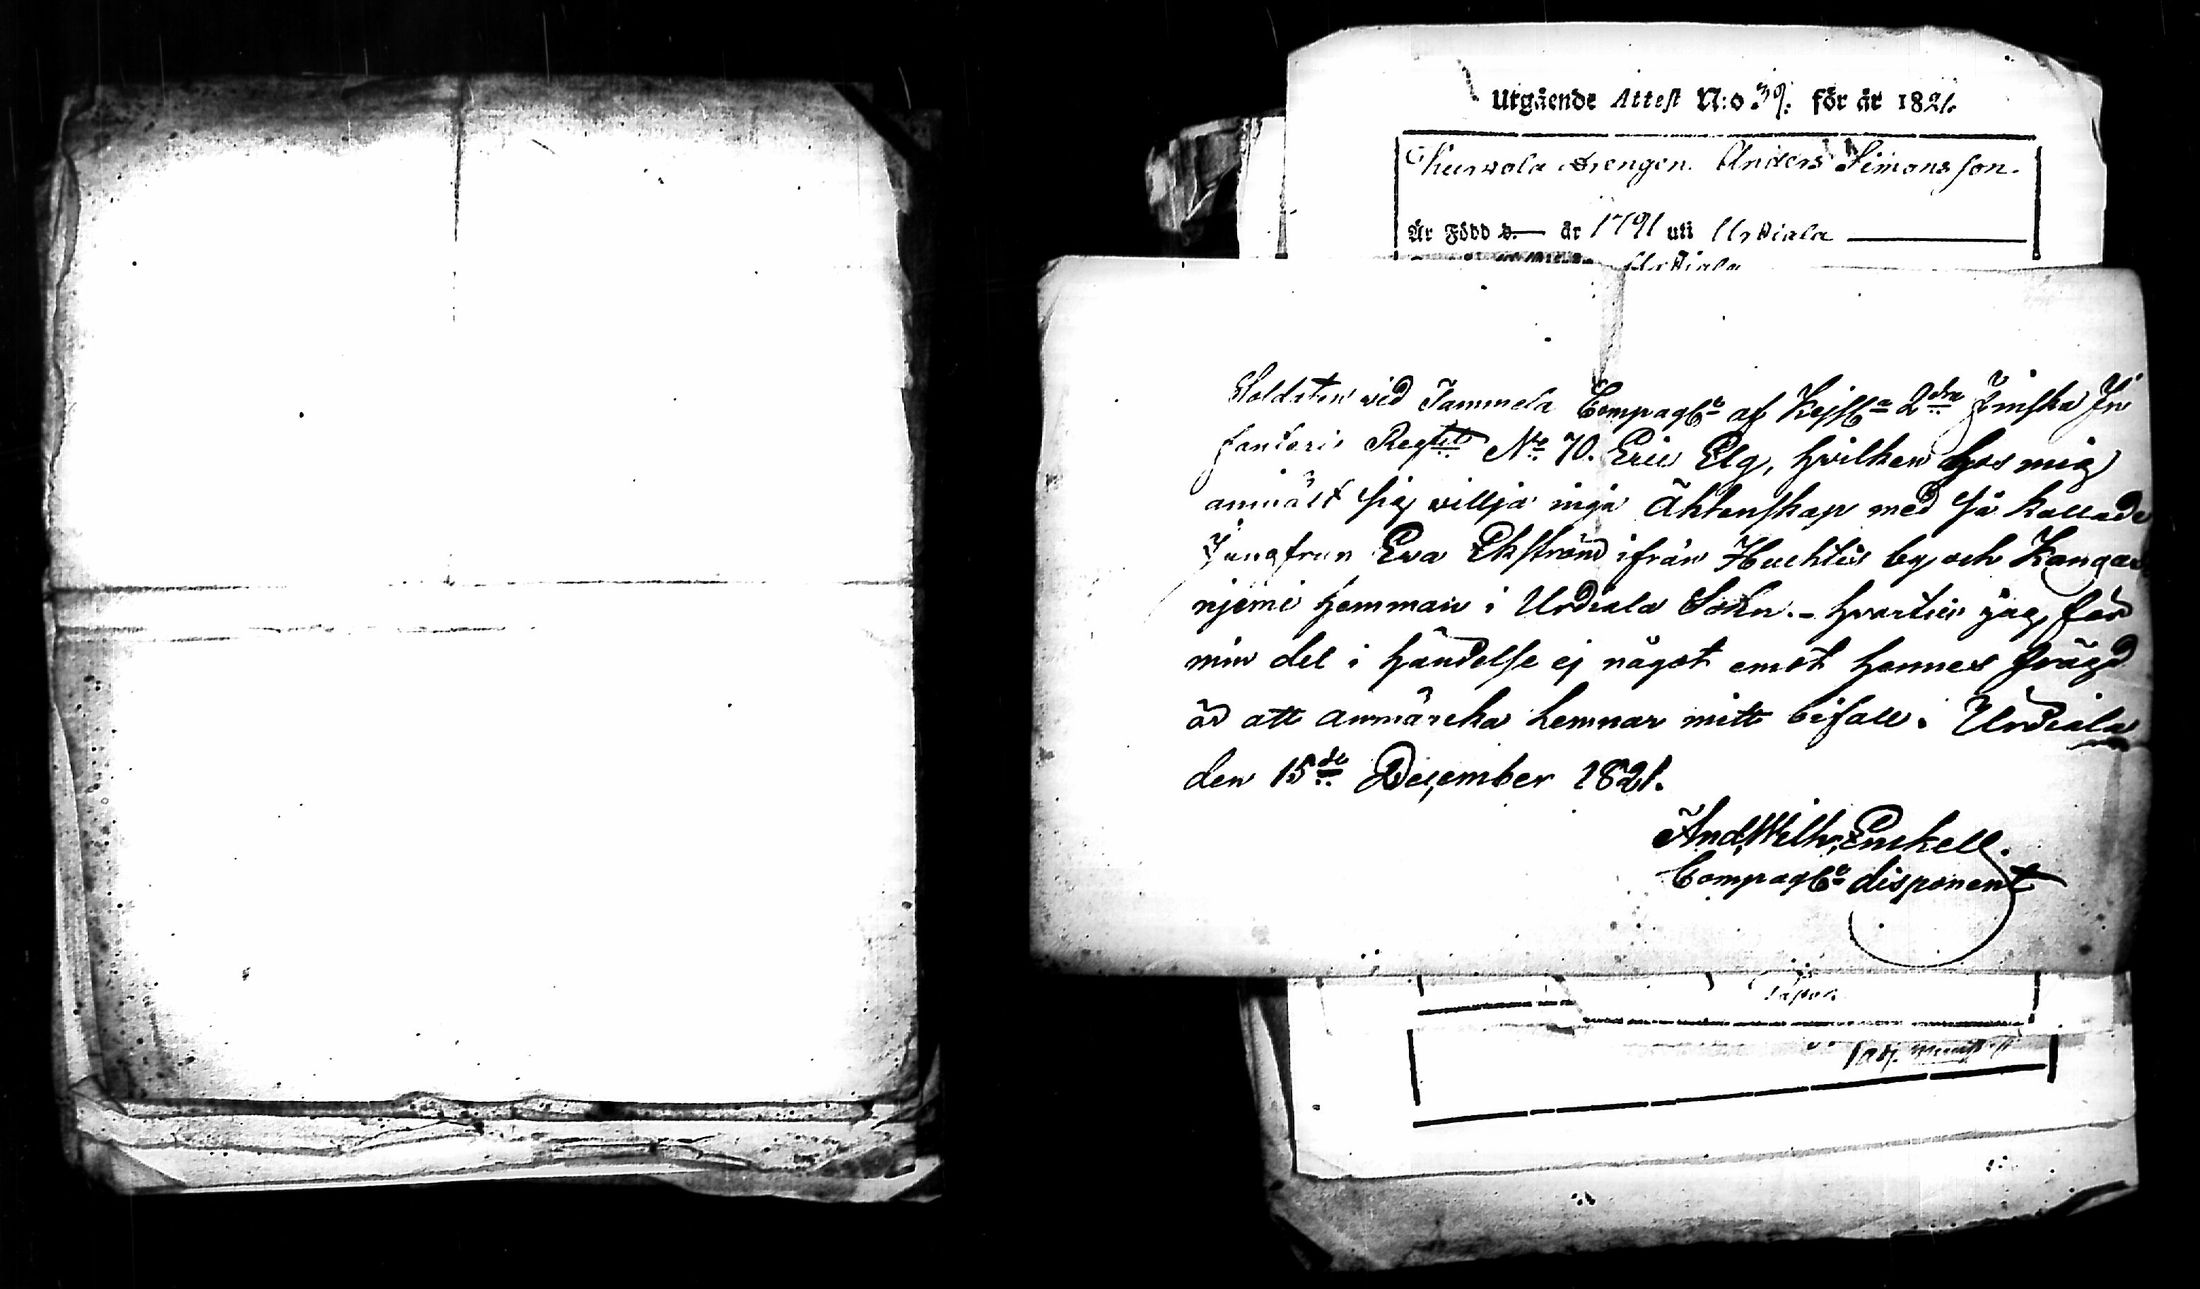 Utgående Attest N:o 39. för år 1821.
Drengen Anders Simonsson.
Är Född d. — år 1791 uti Urdiala
Urdiala
Soldaten vid Tammela Compagℓᵉ af Kejsℓᵃ 2dra Finska In
fanteris Regtets No 70. Eric Elg, hvilken hos mig
anmält sig villja ingå Ähtenskap med så kallade
Jungfrun Eva Ekström ifrån Huchtis by och Kangas
njemi Hemman i Urdiala Sokn. - hvartill jag för
min del i händelse ej något emot hennes frägd
är att anmärcka lemnar mitt bifall. Urdiala
den 15de December 1821.
And. Wilh. Enckell.
Compagℓᵉ disponent